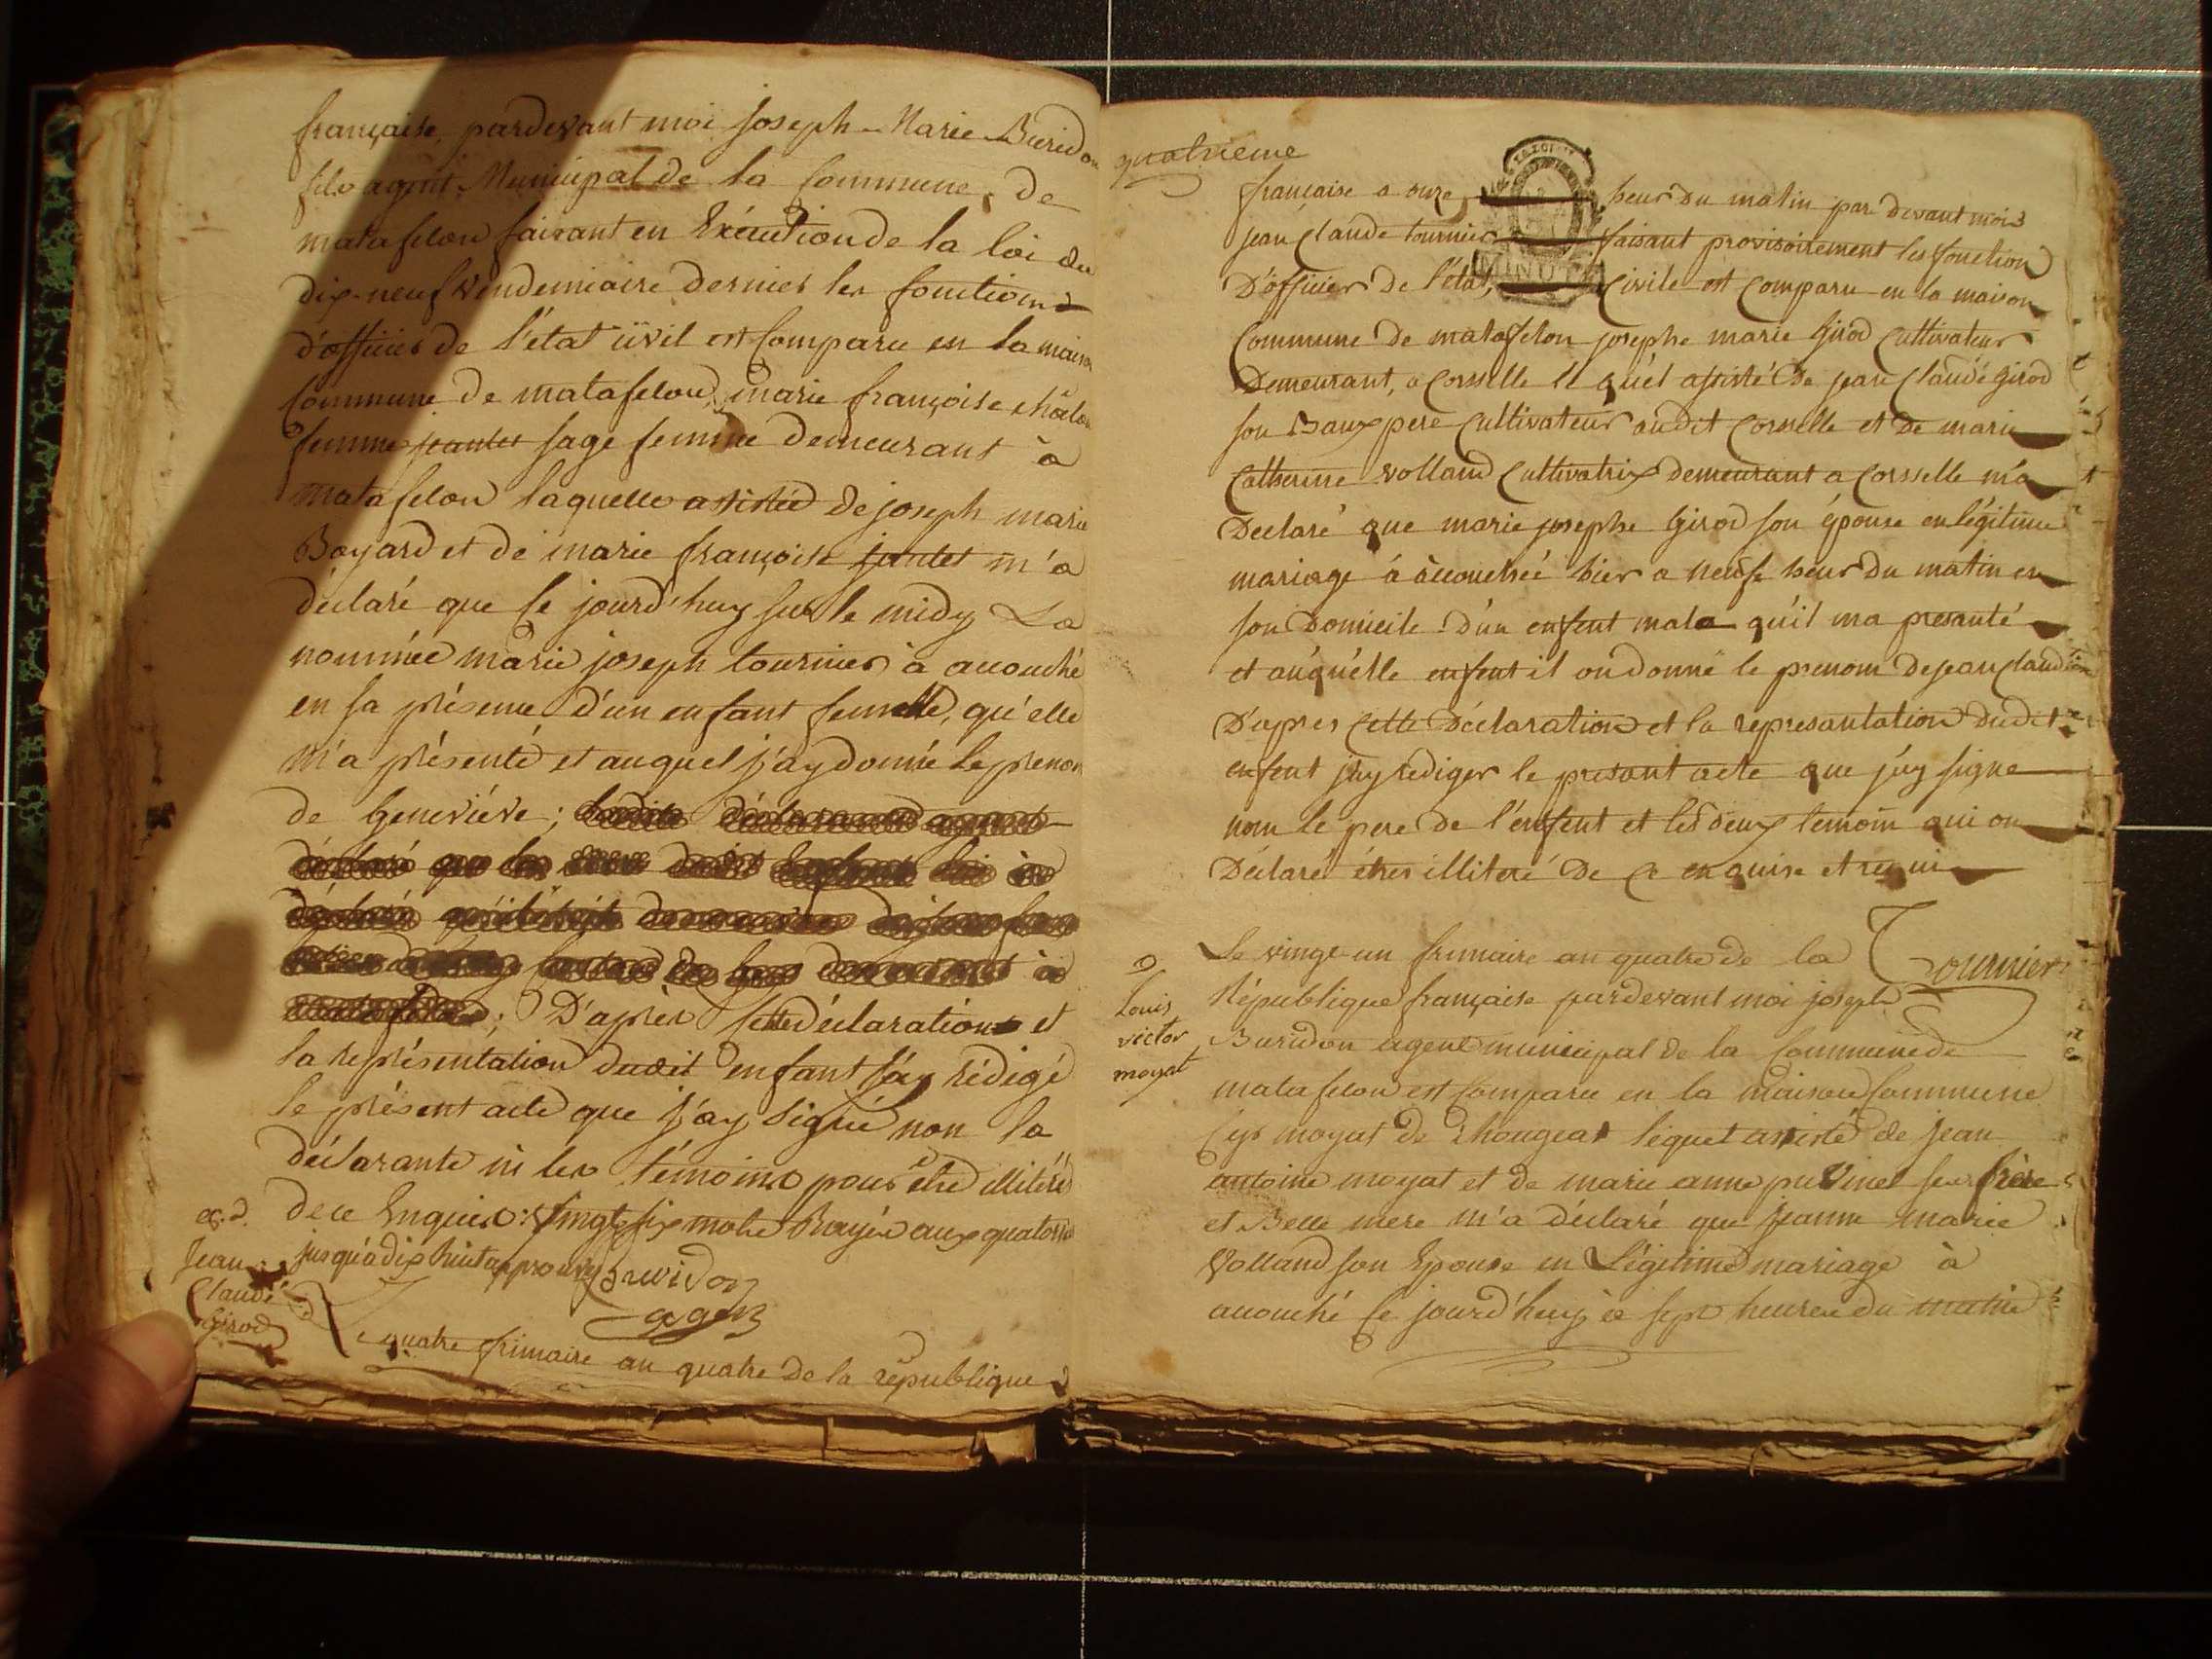 française, pardevant moi joseph-Marie Buridon
fils agent Municipal de la Commune, de
matafelon faisant en Exécution de la loi du
dix-neuf Vendemiaire dernier les fonctions
d'officier de l'état civil est Comparu en la maison
Commune de matafelon, marie françoise châlon
femme jantet sage femme demeurant à
matafelon laquelle assistée de joseph marie
Boyard et de marie françoise jantet m'a
déclaré que ce jourd'huy sur le midy La
nommée marie joseph tournier a accouché
en sa présence d'un enfant femelle, qu'elle
m'a présenté et auquel j'ay donné le prenom
de Geneviéve;
; D'après cette déclaration et
la représentation dudit enfant j'ay rédigé
le présent acte que j'ay signé non la
déclarante ni les témoins pour être illiteré
de ce Enquis: Vingt six mots Rayés aux quatorze
jusqu'à dix huit approuvé Buridon
agent
Jean
Claude
Girod
Le quatre frimaire an quatre de la république
quatrieme
française a onze heur du matin par devant mois
jean Claude tournier faisant provisoirement les fonction
D'officier de l'état, Civile est Comparu en la maison
Commune de matafelon josephe marie Girod Cultivateur
Demeurant, a Corsselle le quél assisté de jean Claude Girod
son Baux pere Cultivateur audit Corsselle et de marie
Catherine volland Cultivatrix demeurant a Corsselle m'a
Declaré que marie josephe Girod son épouse en légitime
mariage á accouchéé hier a neufe heur du matin en
son Domicile d'un enfent male qu'il ma presanté
et auquélle enfent il on donné le prenom de jean Claude
D'apres Cette Déclaration et la represantation dudit
enfent j'ay rediger le presant acte que j'ay signe
nom le pere de l'enfent et les deux temoin qui on
Déclaré étres illiteré De Ce enquise et requi
Tournier
9
Louis
victor
moyat
Le vingt un frimaire an quatre de la
République française pardevant moi joseph
Buridon agent municipal de la Commune de
matafelon est Comparu en la maison Commune
Cyr moyat de Chougeat lequel assisté de jean
antoine moyat et de marie anne puvinel ses frère
et Belle mere m'a déclaré que jeanne marie
Volland son Epouse en Légitime mariage à
accouché ce jourd'huy à sept heures du matin